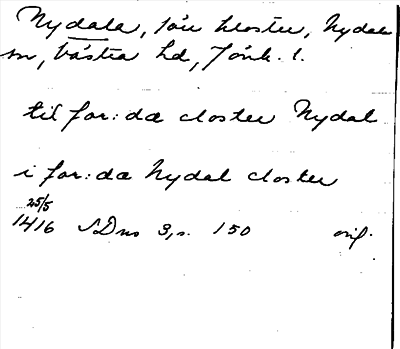 Nydala, förr kloster, Nydala
sn, Västra hd, Jönk. l.
til for:da closter Nydal
i for:da Nydal closter
25/5
1416 SDns 3, s. 150 orig.